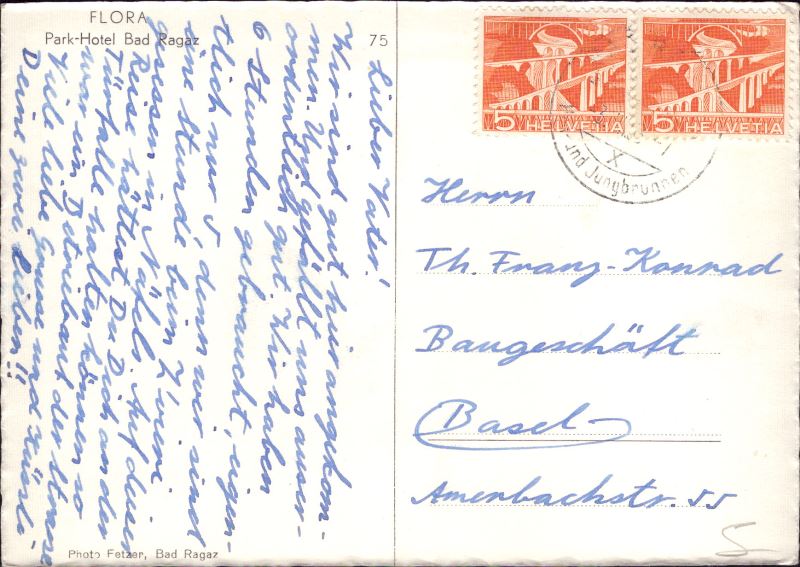 FLORA
Park-Hotel Bad Ragaz
75
Lieber Vater!
Wir sind gut hier angekom-
men. Und gefällt uns ausser-
ordentlich gut. Wir haben
6 Stunden gebraucht, eigen-
tlich nur 5, denn wir sind
eine Stunde beim
gsessen in Näfels. Auf dieser
Reise hättest Du Dich an der
Türfalle halten können so
war ein auf der Strasse
Viele liebe Grüsse und Küssli
Deine zwei Lieben!!
Photo Fetzer, Bad Ragaz
5 HELVETIA
5 HELVETIA
und Jungbrunnen
Herrn
Th. Franz-Konrad
Baugeschäft
Basel
Amerbachstr. 55